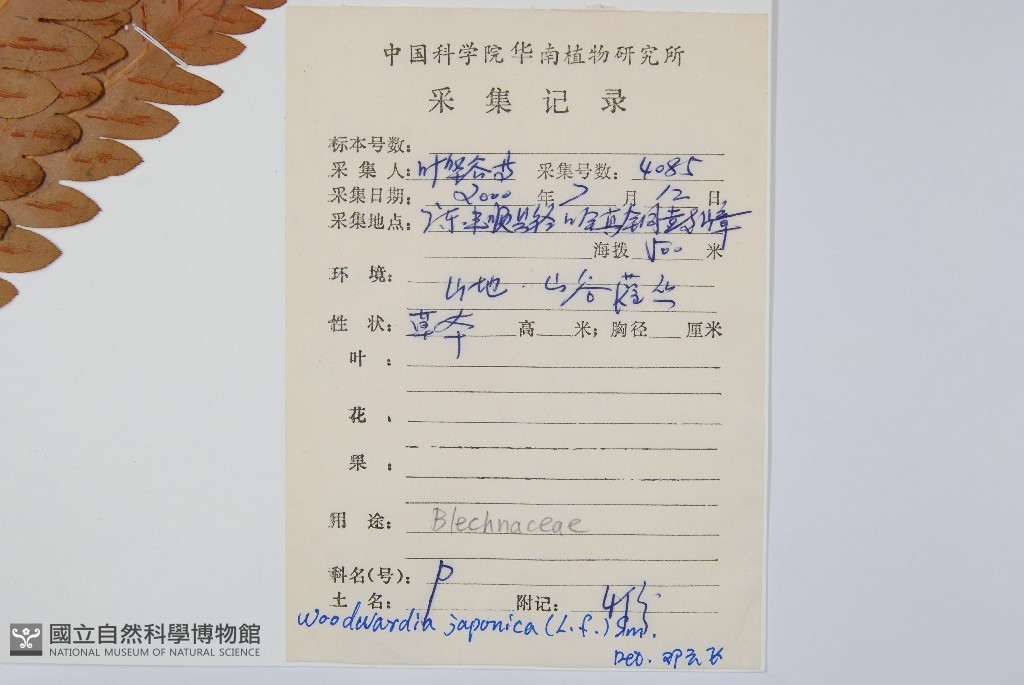 中国科学院华南植物研究所
采集记录
标本号数:
采集人: 叶 采集号数: 4085
采集日期: 2000 年 7 月 12 日
采集地点: 广东
海拨 500 米
环境: 山地·山谷灌丛
性状: 草本 高 米; 胸径 厘米
叶:
花:
果:
用途: Blechnaceae
科名(号): P
土名: 附记: 4份
Woodwardia japonica (L.f.) Sm.
Det. 邓云飞
國立自然科學博物館
NATIONAL MUSEUM OF NATURAL SCIENCE